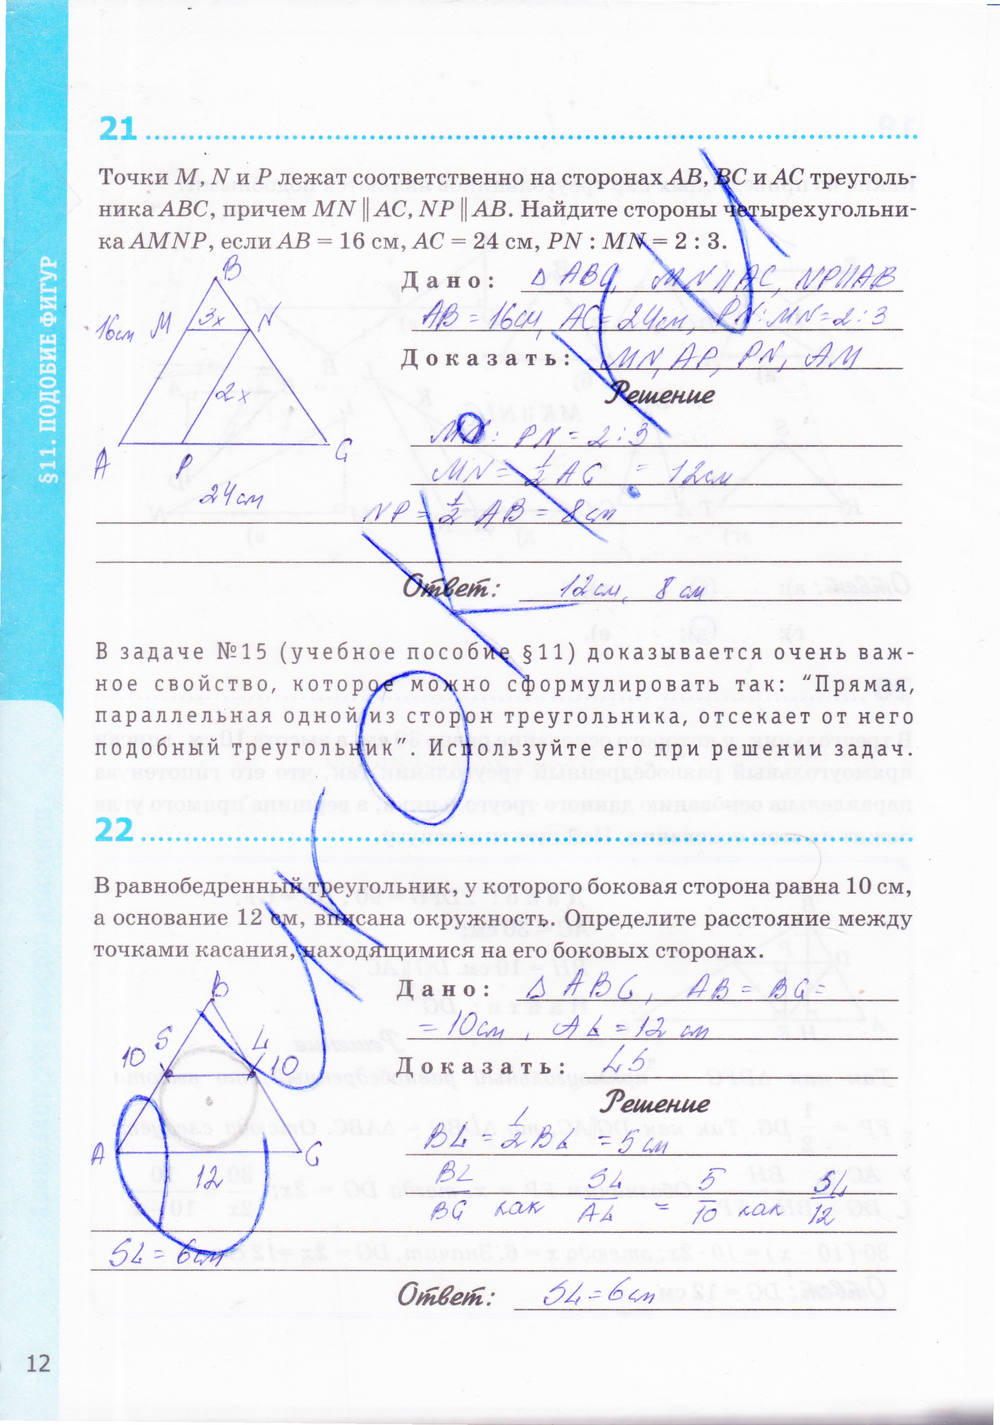 §11. ПОДОБИЕ ФИГУР
21
Точки M, N и P лежат соответственно на сторонах AB, BC и AC треуголь-
ника ABC, причем MN || AC, NP || AB. Найдите стороны четырехугольни-
ка AMNP, если AB = 16 см, AC = 24 см, PN : MN = 2 : 3.
B
16см M 3x N
2x
A P C
24см
Дано: Δ ABC, MN || AC, NP || AB
AB = 16см, AC = 24см, PN : MN = 2 : 3
Доказать: MN, AP, PN, AM
Решение
PN = 2 : 3
MN = 1/2 AC = 12см
NP = 1/2 AB = 8см
Ответ: 12см, 8см
В задаче №15 (учебное пособие §11) доказывается очень важ-
ное свойство, которое можно сформулировать так: “Прямая,
параллельная одной из сторон треугольника, отсекает от него
подобный треугольник”. Используйте его при решении задач.
22
В равнобедренный треугольник, у которого боковая сторона равна 10 см,
а основание 12 см, вписана окружность. Определите расстояние между
точками касания, находящимися на его боковых сторонах.
B
S L
10 10
A C
12
Дано: Δ ABC, AB = BC =
= 10см, AC = 12 см
Доказать: LS
Решение
BL = 1/2 BC = 5см
BL/BC как SL/AC = 5/10 как SL/12
SL = 6см
Ответ: SL = 6см
12